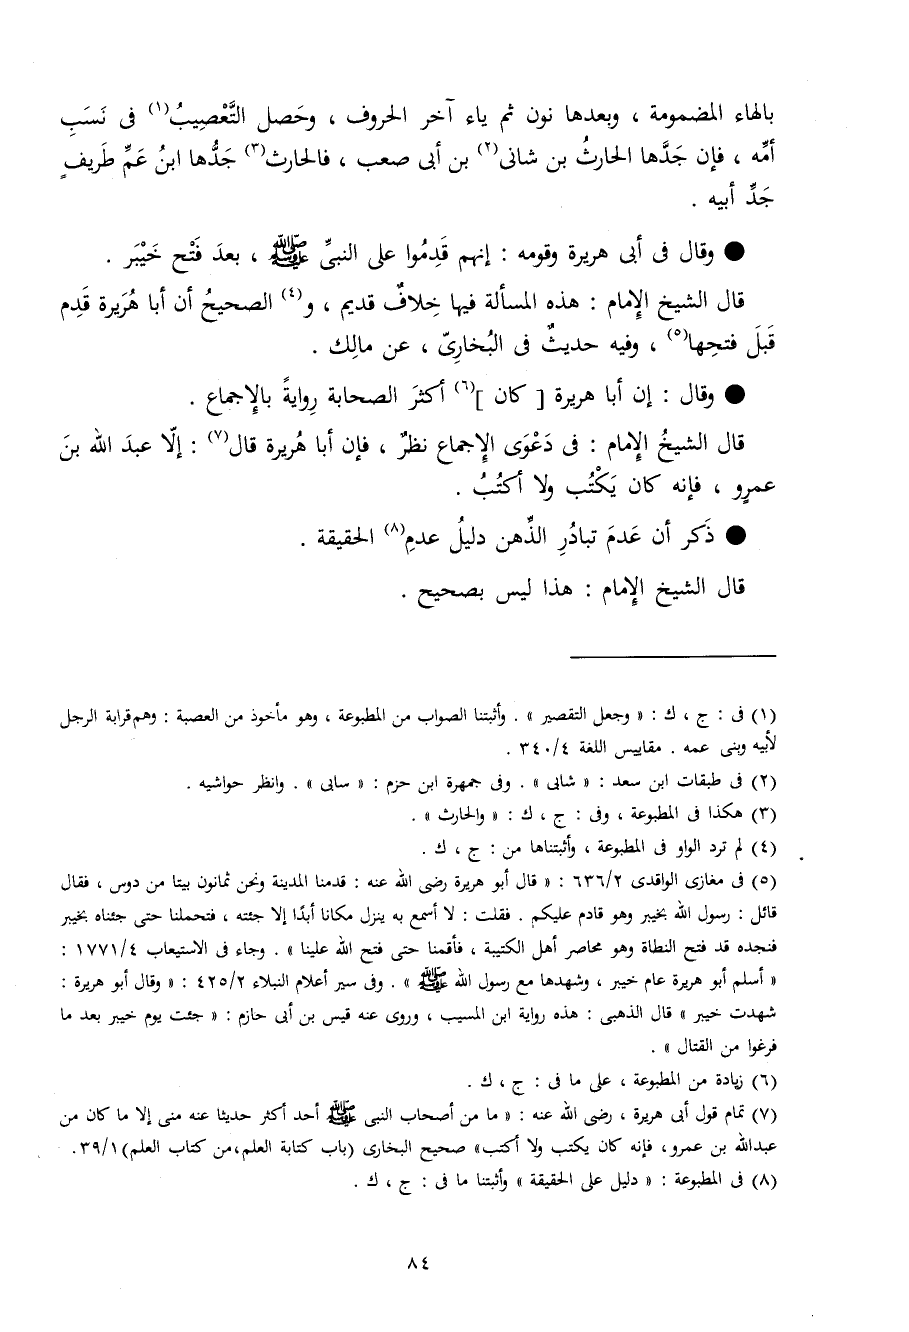 بالهاء المضمومة ، وبعدها نون ثم ياء آخر الحروف ، وحَصل التَّعْصِيبُ(١) فى نَسَبِ
أمِّه ، فإن جَدَّها الحارثُ بن شانى(٢) بن أبى صعب ، فالحارث(٣) جَدُّها ابنُ عَمِّ طَريفٍ
جَدِّ أبيه .
● وقال فى أبى هريرة وقومه : إنهم قَدِمُوا على النبىِّ ﷺ ، بعدَ فَتْح خَيْبَر .
قال الشيخ الإمام : هذه المسألة فيها خِلافٌ قديم ، و(٤) الصحيحُ أن أبا هُرَيرة قَدِم
قَبلَ فتحِها(٥) ، وفيه حديثٌ فى البُخارىّ ، عن مالِك .
● وقال : إن أبا هريرة [ كان ](٦) أكثرَ الصحابة رِوايةً بالإجماع .
قال الشيخُ الإمام : فى دَعْوَى الإجماع نظرٌ ، فإن أبا هُريرة قال(٧) : إلّا عبدَ الله بنَ
عمرٍو ، فإنه كان يَكْتُب ولا أكتُبُ .
● ذَكر أن عَدمَ تبادُرِ الذِّهن دليلُ عدمِ(٨) الحقيقة .
قال الشيخ الإمام : هذا ليس بصحيح .
(١) فى : ج ، ك : « وجعل التقصير » . وأثبتنا الصواب من المطبوعة ، وهو مأخوذ من العصبة : وهم قرابة الرجل
لأبيه وبنى عمه . مقاييس اللغة ٣٤٠/٤ .
(٢) فى طبقات ابن سعد : « شابى » . وفى جمهرة ابن حزم : « سابى » . وانظر حواشيه .
(٣) هكذا فى المطبوعة ، وفى : ج ، ك : « والحارث » .
(٤) لم ترد الواو فى المطبوعة ، وأثبتناها من : ج ، ك .
(٥) فى مغازى الواقدى ٦٣٦/٢ : « قال أبو هريرة رضى الله عنه : قدمنا المدينة ونحن ثمانون بيتا من دوس ، فقال
قائل : رسول الله بخيبر وهو قادم عليكم . فقلت : لا أسمع به ينزل مكانا أبدًا إلا جئته ، فتحملنا حتى جئناه بخيبر
فنجده قد فتح النطاة وهو محاصر أهل الكتيبة ، فأقمنا حتى فتح الله علينا » . وجاء فى الاستيعاب ١٧٧١/٤ :
« أسلم أبو هريرة عام خيبر ، وشهدها مع رسول الله ﷺ » . وفى سير أعلام النبلاء ٤٢٥/٢ : « وقال أبو هريرة :
شهدت خيبر » قال الذهبى : هذه رواية ابن المسيب ، وروى عنه قيس بن أبى حازم : « جئت يوم خيبر بعد ما
فرغوا من القتال » .
(٦) زيادة من المطبوعة ، على ما فى : ج ، ك .
(٧) تمام قول أبى هريرة ، رضى الله عنه : « ما من أصحاب النبى ﷺ أحد أكثر حديثا عنه منى إلا ما كان من
عبدالله بن عمرو، فإنه كان يكتب ولا أكتب» صحيح البخارى (باب كتابة العلم،من كتاب العلم)٣٩/١.
(٨) فى المطبوعة : « دليل على الحقيقة » وأثبتنا ما فى : ج ، ك .
٨٤